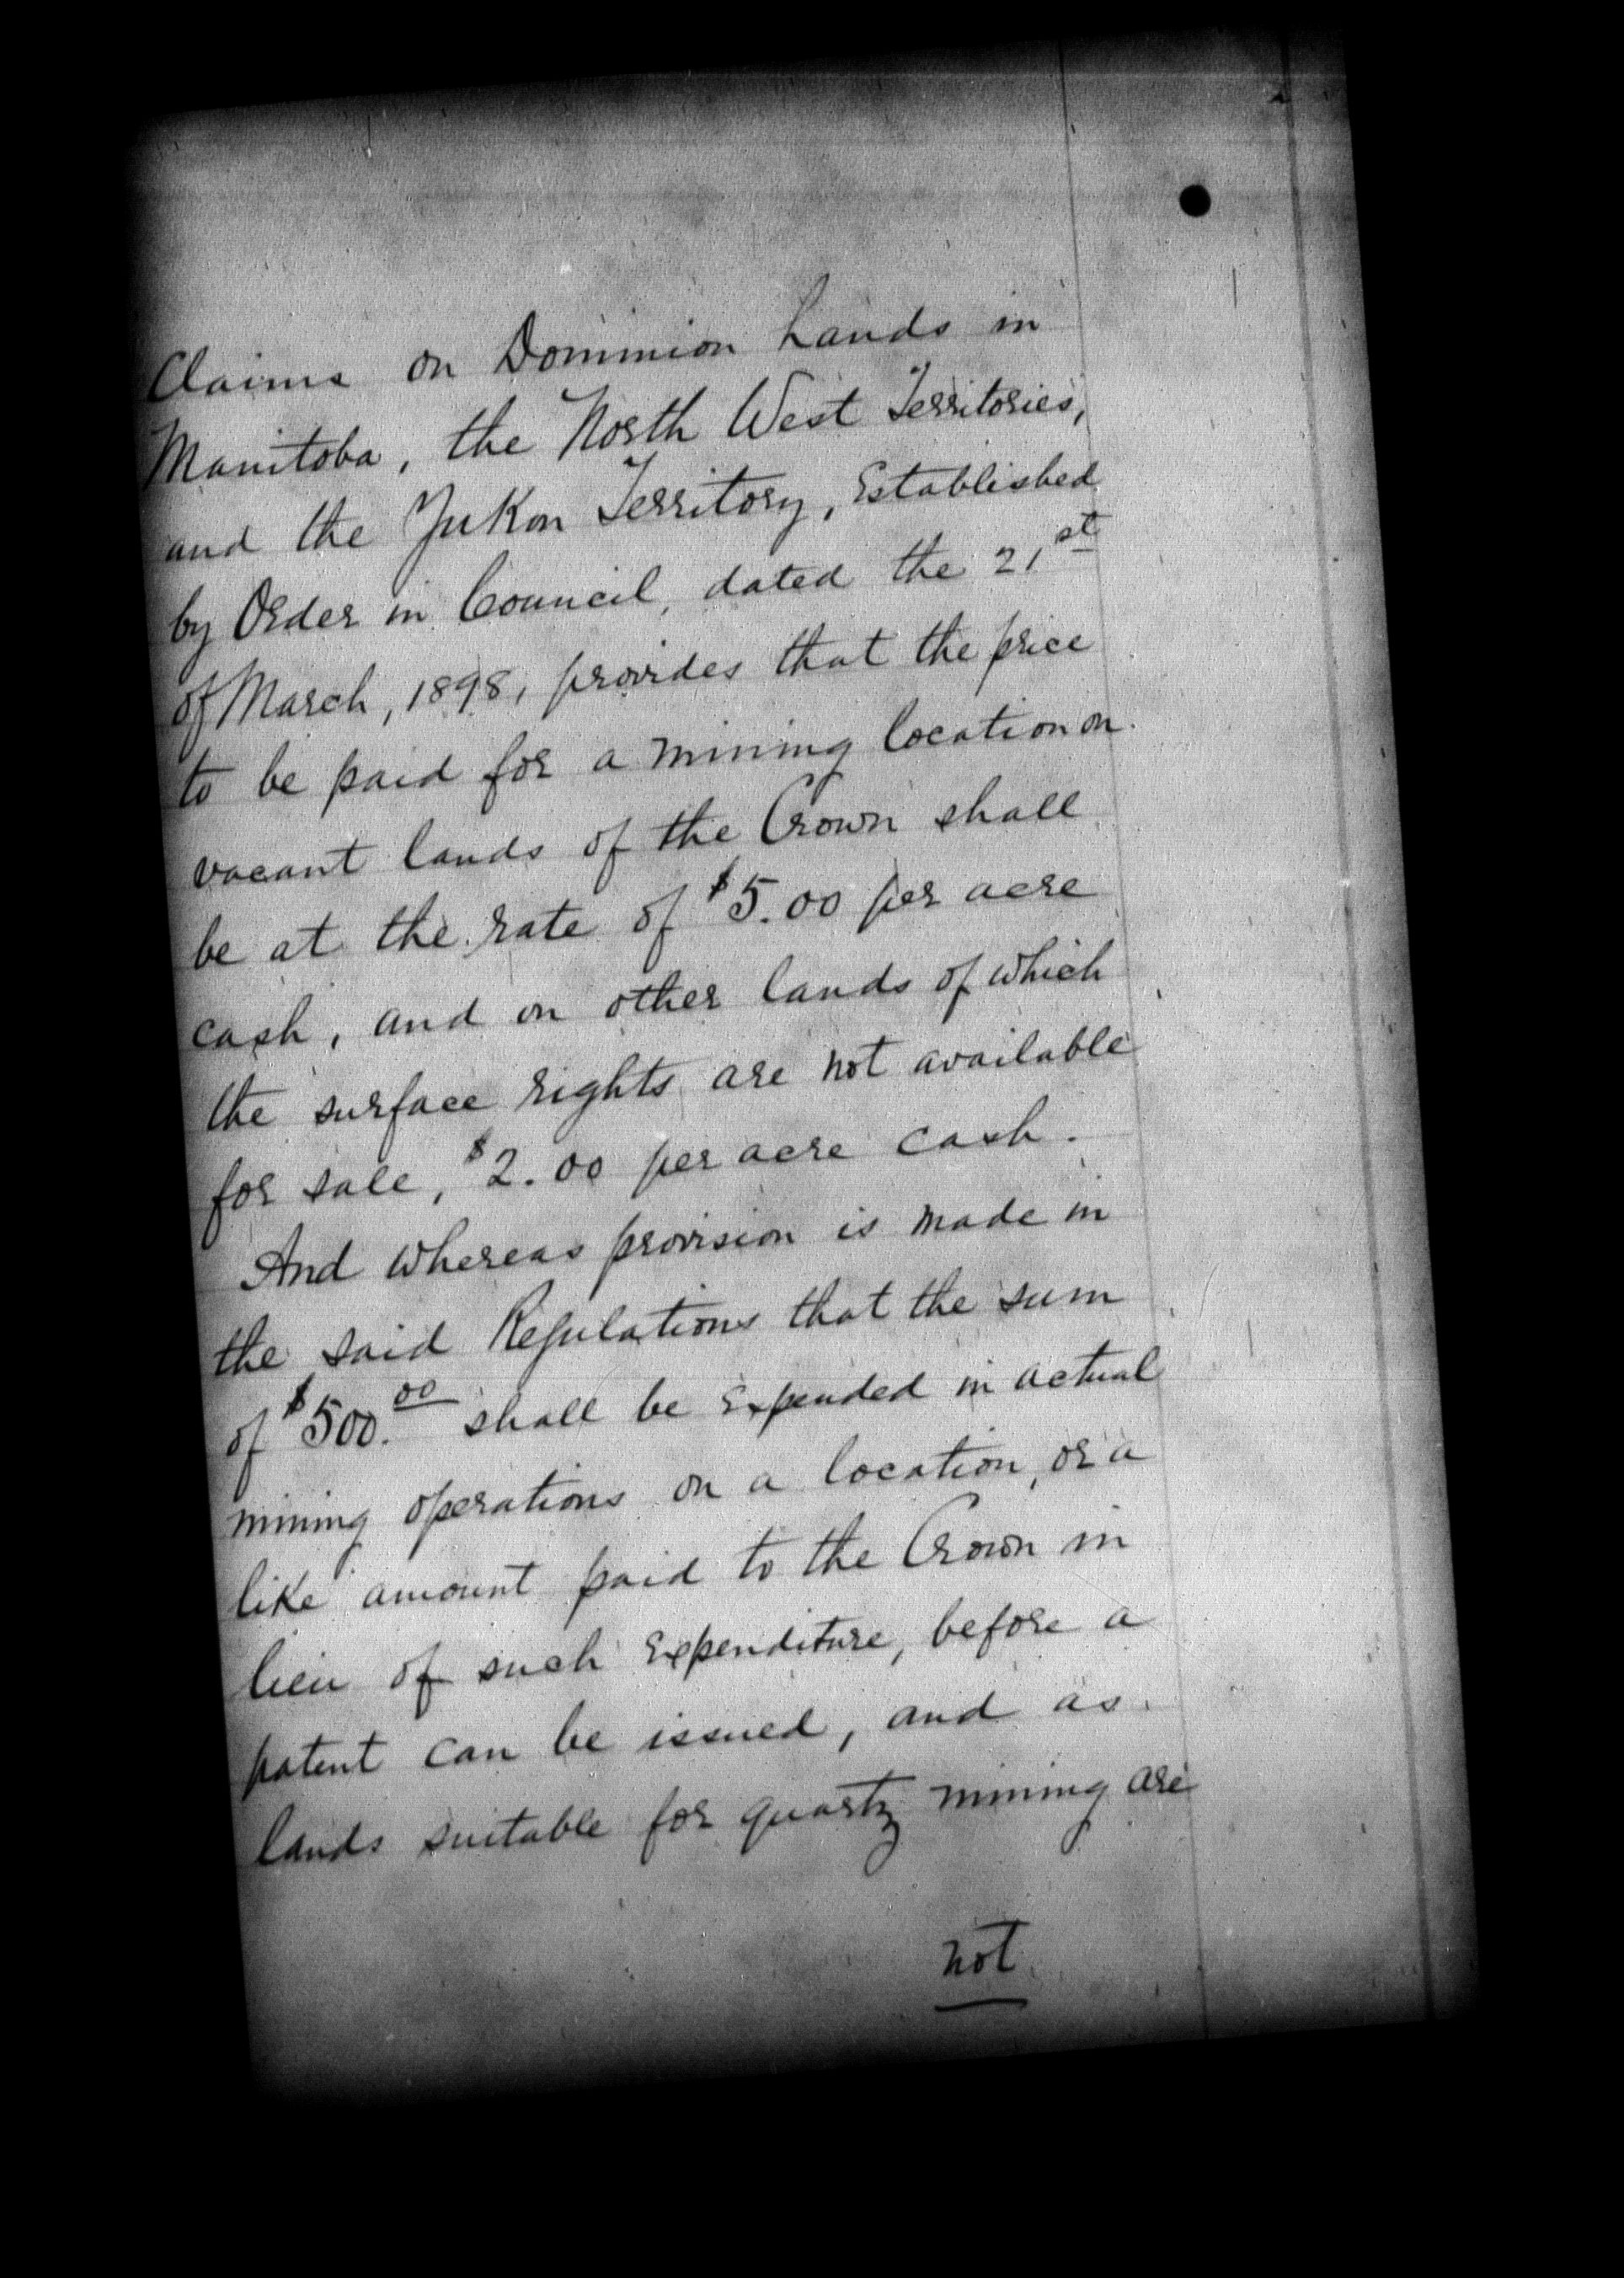 Claims on Dominion Lands in
Manitoba, the North West Territories,
and the Yukon Territory, Established
by Order in Council, dated the 21st
of March, 1898, provides that the price
to be paid for a mining location on
vacant lands of the Crown shall
be at the rate of $5.00 per acre
cash, and on other lands of which
the surface rights are not available
for sale, $2.00 per acre cash.
And whereas provision is made in
the said Regulations that the sum
of $500.00 shall be Expended in actual
mining operations on a location, or a
like amount paid to the Crown in
lieu of such Expenditure, before a
patent can be issued, and as
lands suitable for quartz mining are
not